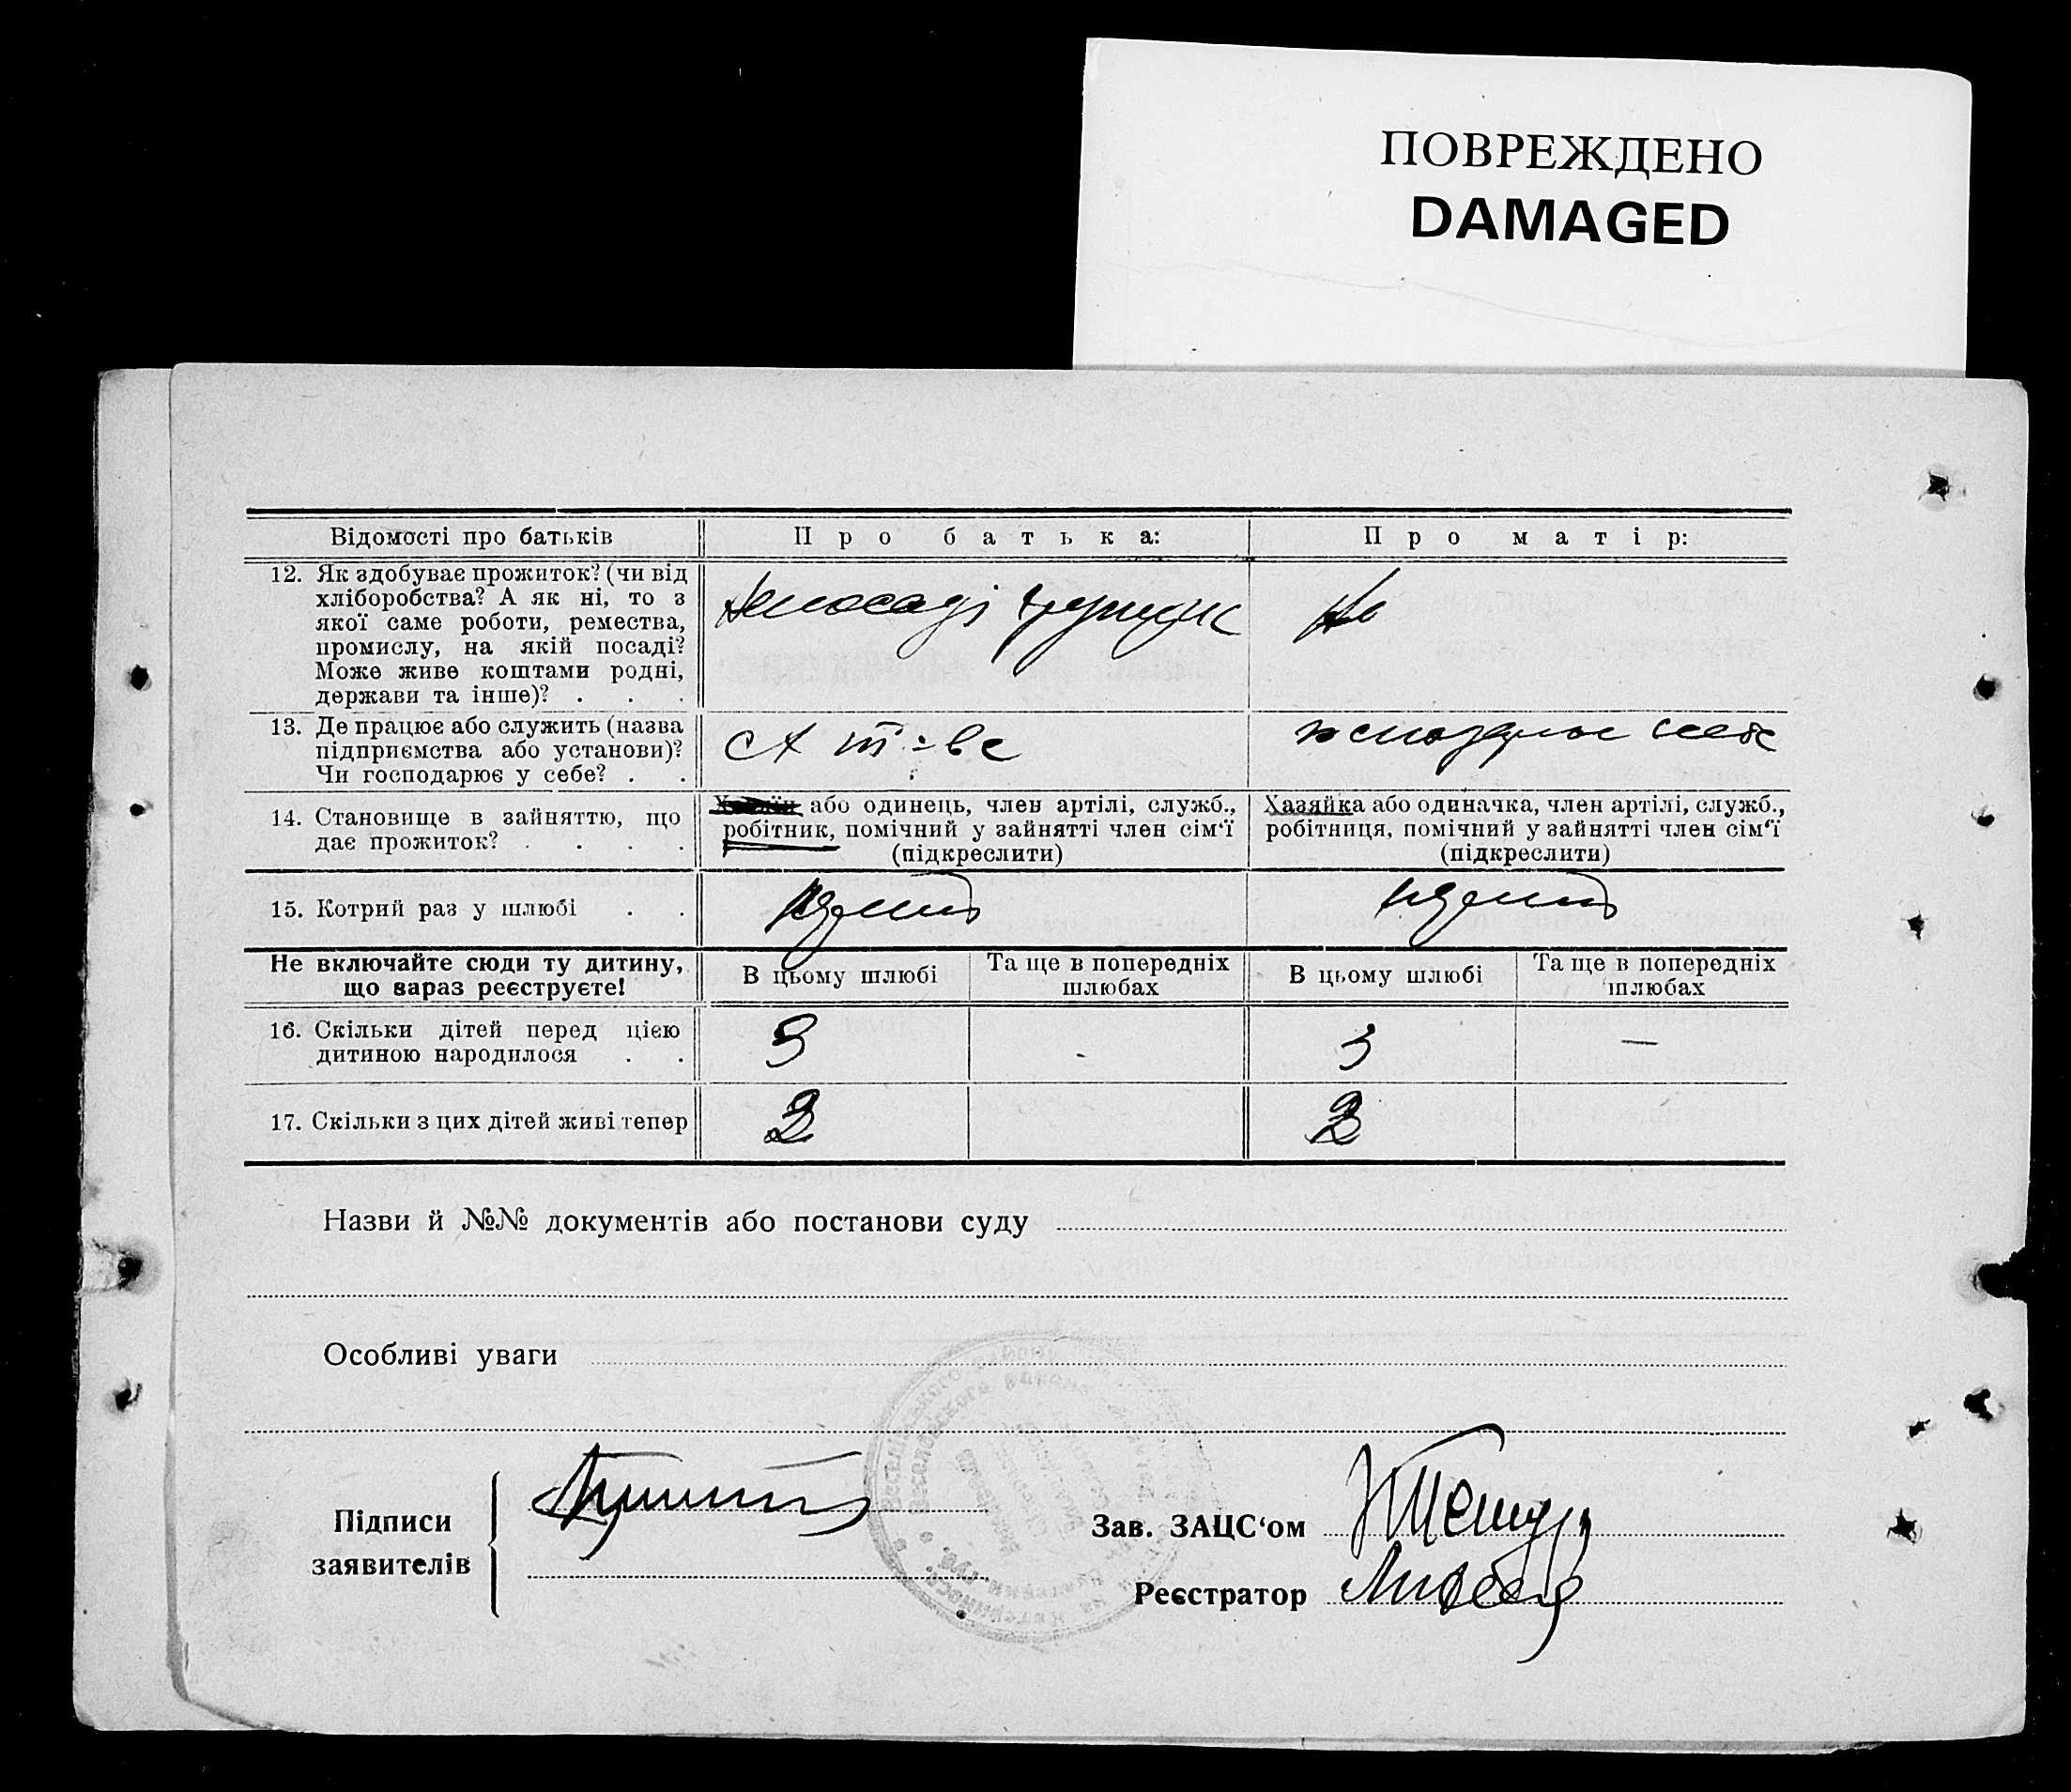 ПОВРЕЖДЕНО
DAMAGED
Відомості про батьків
Про батька:
Про матір:
12. Як здобуває прожиток? (чи від
хліборобства? А як ні, то з
якої саме роботи, ремества,
промислу, на якій посаді?
Може живе коштами родні,
держави та інше)? . . .
13. Де працює або служить (назва
підприємства або установи)?
Чи господарює у себе? . .
14. Становище в зайняттю, що
дає прожиток? . . . .
або одинець, член артілі, служб.,
робітник, помічний у зайнятті член сім‘ї
(підкреслити)
Хазяйка або одиначка, член артілі, служб.,
робітниця, помічний у зайнятті член сім‘ї
(підкреслити)
15. Котрий раз у шлюбі . .
Не включайте сюди ту дитину,
що зараз реєструєте!
В цьому шлюбі
Та ще в попередніх
шлюбах
В цьому шлюбі
Та ще в попередніх
шлюбах
16. Скільки дітей перед цією
дитиною народилося . .
3
3
—
17. Скільки з цих дітей живі тепер
2
2
Назви й №№ документів або постанови суду
Особливі уваги
Підписи
заявителів
Зав. ЗАЦС‘ом
Реєстратор